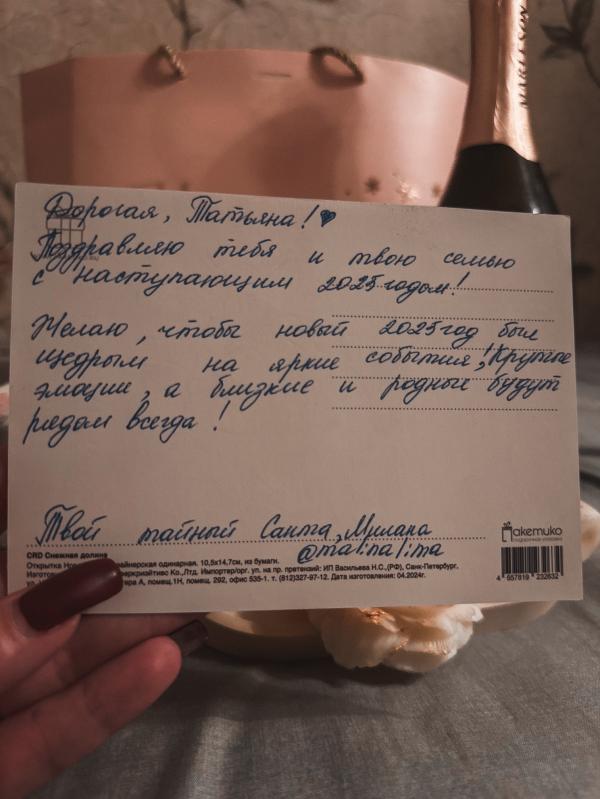 MARLESON
Дорогая, Татьяна!
Поздравляю тебя и твою семью
с наступающим 2025 годом!
Желаю, чтобы новый 2025 год был
щедрым на яркие события, крутые
эмоции, а близкие и родные будут
рядом всегда!
Твой тайный Санта, Милана
@malinalima
акетико
CRD Снежная долина
Открытка Нов райнерская одинарная, 10,5х14,7см, из бумаги.
Изгото еркриэйтивс Ко.,Лтд. Импортер/орг. уп. на пр. претензий: ИП Васильева Н.С.,(РФ), Санкт-Петербург,
тера А, помещ.1Н, помещ. 292, офис 535-1. т. (812)327-97-12. Дата изготовления: 04.2024г.
4 657819 232632